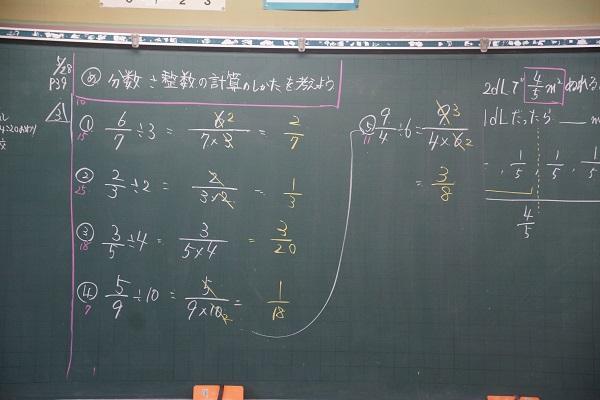 6/28
P39
め 分数÷整数の計算のしかたを考えよう
3
① 6/7 ÷ 3 = 6 2/7×3 = 2/7
15
② 2/3 ÷ 2 = 2/3×2 = 1/3
25
③ 3/5 ÷ 4 = 3/5×4 = 3/20
18
④ 5/9 ÷ 10 = 5/9×10 2 = 1/18
7
⑤ 9/4 ÷ 6 = 9 3/4×6 2
11
= 3/8
2dLで 4/5 m² ぬれる
1dLだったら __ m
1/5 1/5 1/5
4/5